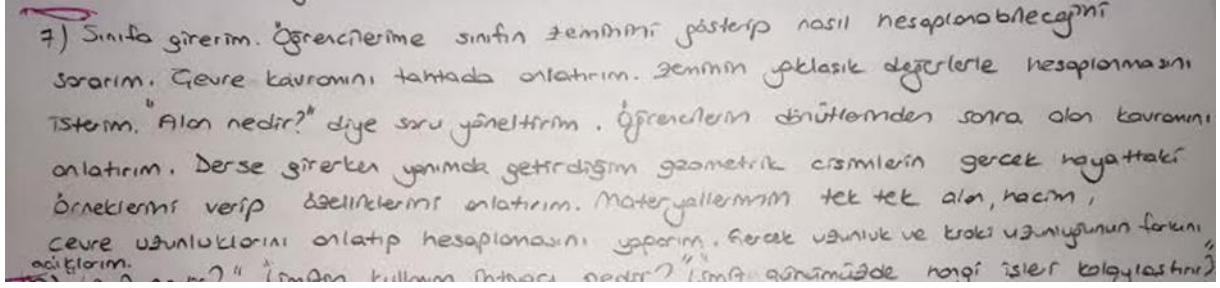 7) Sınıfa girerim. Öğrencilerime sınıfın zeminini gösterip nasıl hesaplanabileceğini
sorarım. Çevre kavramını tahtada anlatırım. Zeminin yaklaşık değerlerle hesaplanmasını
isterim. "Alan nedir?" diye soru yöneltirim. Öğrencilerin dönütlerinden sonra alan kavramını
anlatırım. Derse girerken yanımda getirdiğim geometrik cisimlerin gerçek hayattaki
örneklerini verip özelliklerini anlatırım. Materyallerimin tek tek alan, hacim,
çevre uzunluklarını anlatıp hesaplamasını yaparım. Gerçek uzunluk ve kroki uzunluğunun farkını
açıklarım.
kullanım ihtiyacı nedir?" günümüzde hangi işleri kolaylaştırır?"